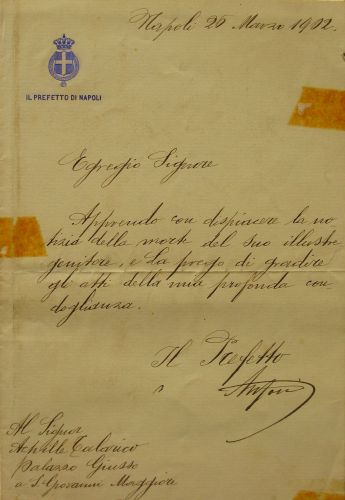 Napoli 26 Marzo 1902.
IL PREFETTO DI NAPOLI
Egregio Signore
Apprendo con dispiacere la no
tizia della morte del Suo illustre
genitore, e La prego di gradire
gli atti della mia profonda con
doglianza.
Il Prefetto
Al Signor
Achille Talarico
Palazzo Giusso
a S. Giovanni Maggiore